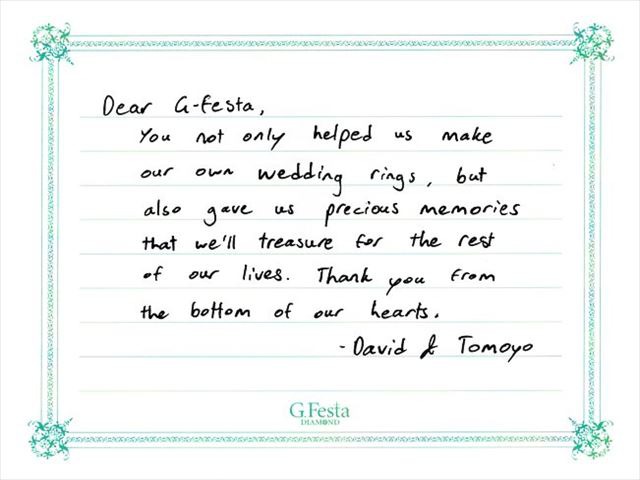 Dear G-Festa,
You not only helped us make
our own wedding rings, but
also gave us precious memories
that we'll treasure for the rest
of our lives. Thank you from
the bottom of our hearts.
- David & Tomoyo
G.Festa
DIAMOND